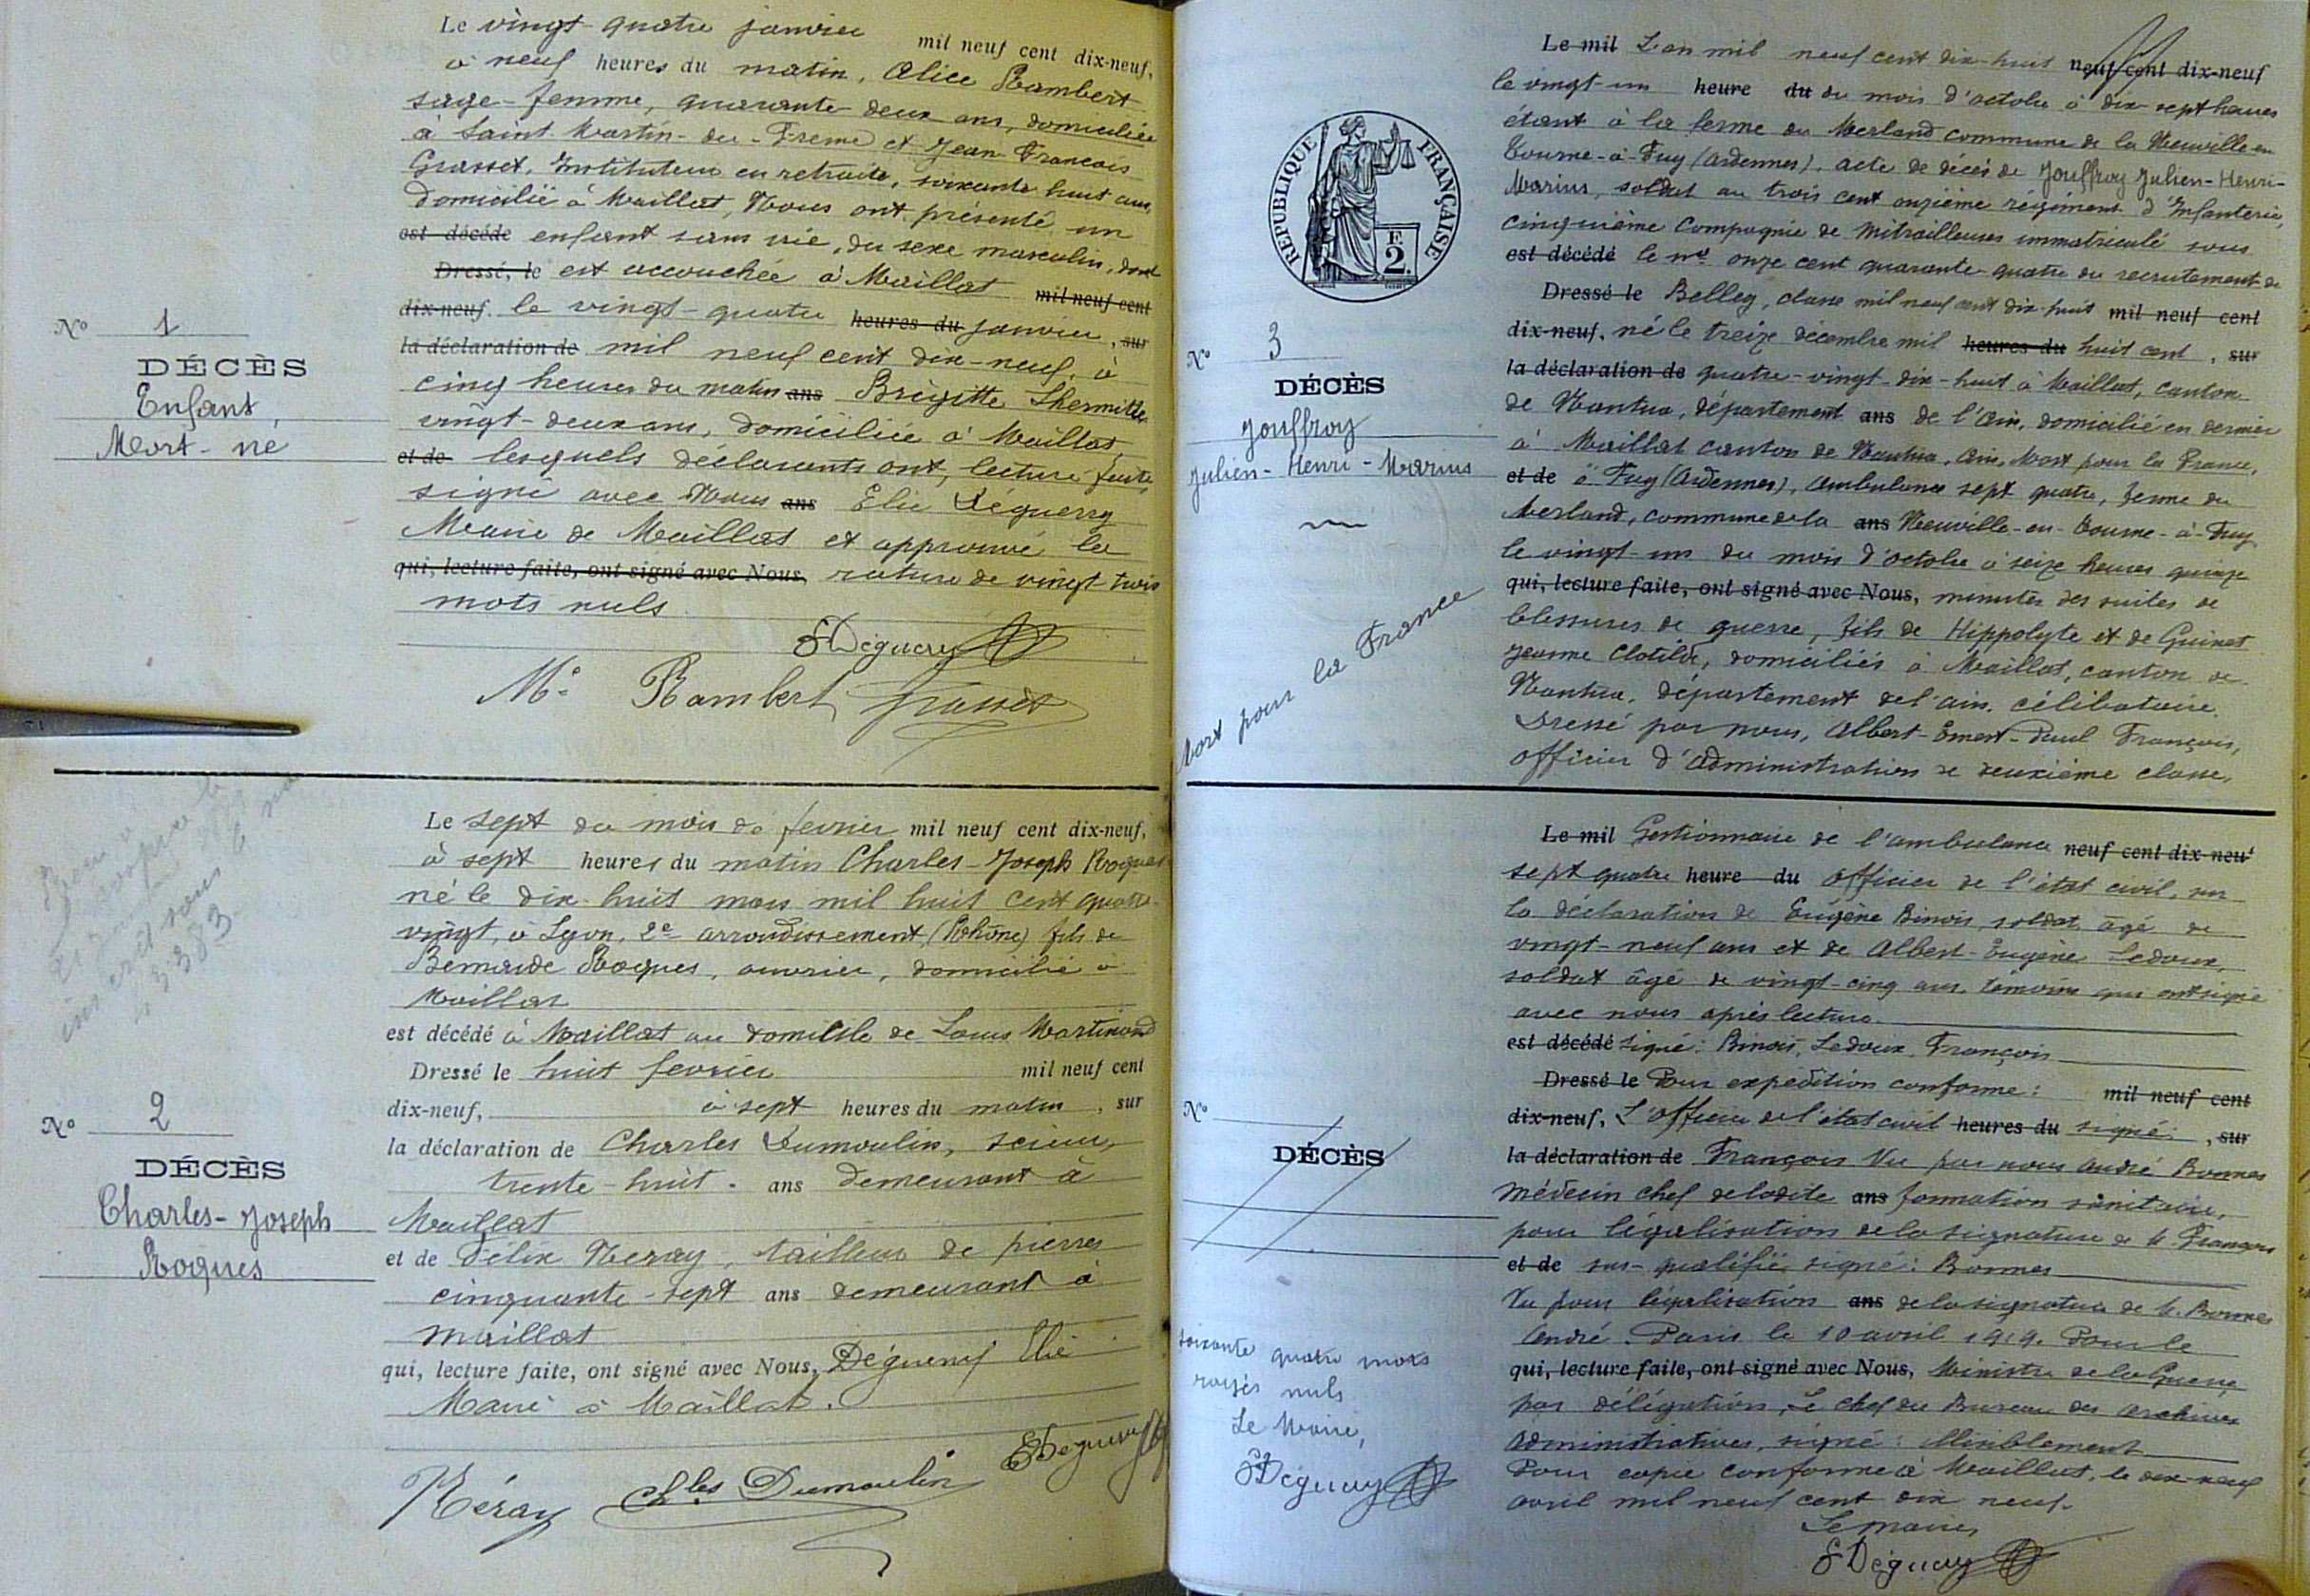 Le vingt-quatre janvier mil neuf cent dix-neuf,
à neuf heures du matin, Alice Rambert
sage-femme, quarante-deux ans, domiciliée
à Saint-Martin-du-Frêne et Jean François
Grasset, Instituteur en retraite, soixante huit ans,
domicilié à Maillat, Nous ont présenté un
est décédé enfant sans vie, du sexe masculin, dont
Dressé, le est accouchée à Maillat mil neuf cent
dix-neuf. le vingt-quatre heures du janvier, sur
la déclaration de mil neuf cent dix-neuf, à
cinq heures du matin ans Brigitte Lhermitte
vingt-deux ans, domiciliée à Maillat,
et de lesquels déclarants ont, lecture faite,
signé avec Nous ans Elie Déguerry
Maire de Maillat et approuvé la
qui, lecture faite, ont signé avec Nous, rature de vingt-trois
mots nuls
EDéguerry
Rambert Grasset
No 1
DÉCÈS
Enfant,
Mort-né
Le sept du mois de fevrier mil neuf cent dix-neuf,
à sept heures du matin Charles-Joseph Roques
né le dix-huit mars mil huit cent quatre-
vingt, à Lyon, 2e arrondissement (Rhône) fils de
Roques, ouvrier, domicilié à
Maillat
est décédé à Maillat au domicile de Louis Martinand
Dressé le huit fevrier mil neuf cent
dix-neuf, à sept heures du matin, sur
la déclaration de Charles Dumoulin, scieur,
trente-huit. ans demeurant à
Maillat
et de Félix Neray, tailleur de pierres
cinquante-sept ans demeurant à
Maillat
qui, lecture faite, ont signé avec Nous, Déguerry Elie
Maire à Maillat.
Néray Chles Dumoulin EDéguerry
No 2
DÉCÈS
Charles-Joseph
Roques
RÉPUBLIQUE FRANÇAISE
E
2.
No 3
DÉCÈS
Jouffroy
Julien-Henri-Marius
Mort pour la France
Le mil L'an mil neuf cent dix-huit neuf cent dix-neuf
le vingt-un heure du du mois d'octobre à dix-sept heures
étant à la ferme du Merland commune de la Neuville-en
Tourne-à-Fuy (Ardennes). acte de décès de Jouffroy Julien-Henri-
Marius, soldat au trois cent onzième régiment d'Infanterie,
cinquième Compagnie de Mitrailleuses immatriculé sous
est décédé le no onze cent quarante-quatre du recrutement de
Dressé le Belley, classe mil neuf cent dix-huit mil neuf cent
dix-neuf. né le treize décembre mil heures du huit cent, sur
la déclaration de quatre-vingt-dix-huit à Maillat, canton
de Nantua, département ans de l'Ain, domicilié en dernier
à Maillat canton de Nantua, Ain, Mort pour la France,
et de à Fuy (Ardennes), ambulance sept quatre, ferme du
Merland, commune de la ans Neuville-en-Tourne-à-Fuy
le vingt-un du mois d'octobre à seize heures quinze
qui, lecture faite, ont signé avec Nous, minutes des suites de
blessures de guerre, fils de Hippolyte et de Guinet
Jeanne Clotilde, domiciliés à Maillat, canton de
Nantua, département de l'ain. célibataire.
Dressé par nous, Albert-Ernest-Paul François,
officier d'administration de deuxième classe,
Le mil Gestionnaire de l'ambulance neuf cent dix-neuf
sept quatre heure du officier de l'état civil, sur
la déclaration de Eugène Binois, soldat âgé de
vingt-neuf ans et de Albert-Eugène Ledoux,
soldat âgé de vingt-cinq ans, témoins qui ont signé
avec nous après lecture.
est décédé signé: Binois, Ledoux, François
Dressé le Pour expédition conforme: mil neuf cent
dix-neuf. L'officier de l'état civil heures du signé:, sur
la déclaration de François Vu par nous André Bonnes
Médecin chef de ladite ans formation sanitaire,
pour légalisation de la signature de M. François
et de sus-qualifié signé: Bonnes
Vu pour légalisation ans de la signature de M. Bonnes
André. Paris le 10 avril 1919. Pour le
qui, lecture faite, ont signé avec Nous, Ministre de la Guerre
par délégation, Le chef du Bureau des archives
administratives, signé: Illisiblement
Pour copie conforme à Maillat, le dix-neuf
avril mil neuf cent dix neuf.
Le maire,
EDéguerry
No
DÉCÈS
soixante quatre mots
rayés nuls
Le Maire,
EDéguerry